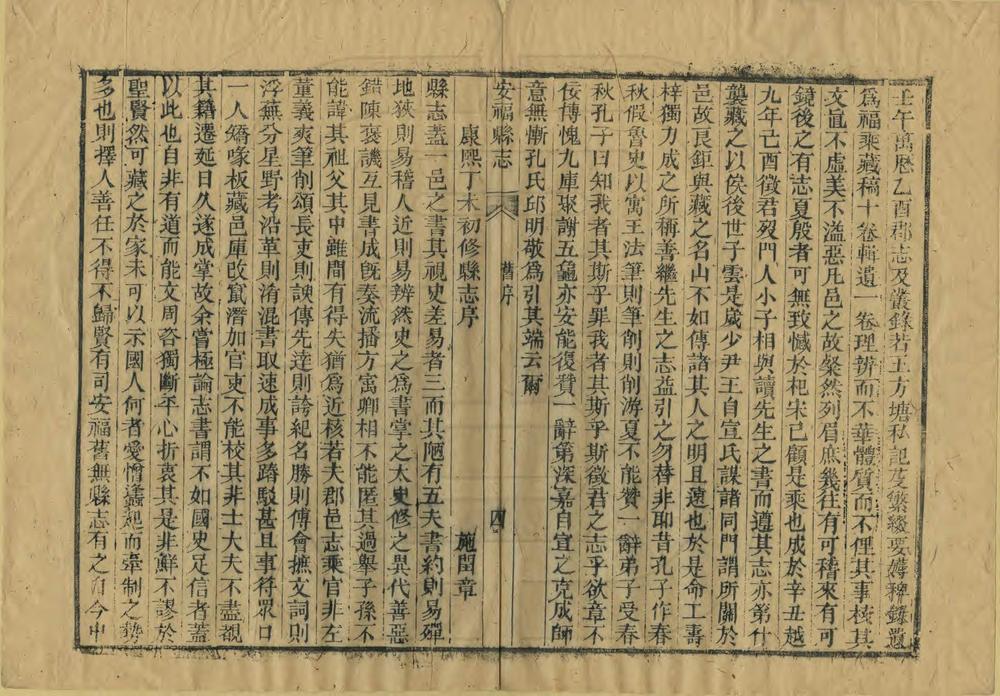 壬午萬厯乙酉郡志及叢錄若王方塘私記及繁綴要傳稗錄農
爲福乘藏稿十卷輯遺一卷理辨而不華體質而不俚其事核其
文直不虛美不溢惡凡邑之故粲然列眉庶幾往有可稽來有可
鏡後之有志夏殷者可無致憾於杞宋已顧是乘也成於辛丑越
九年己酉徵君歿門人小子相與讀先生之書而遵其志亦第什
襲藏之以俟後世子雲是歲少尹王自宣氏謀諸同門謂所關於
邑故良鉅與藏之名山不如傳諸其人之明且遠也於是命工壽
梓獨力成之所稱善繼先生之志益引之勿替非耶昔孔子作春
秋假魯史以寓王法筆則筆削則削游夏不能贊一辭弟子受春
秋孔子曰知我者其斯乎罪我者其斯乎斯徵君之志乎欲章不
佞傳愧九庫聚謝五龜亦安能復贊一辭第深嘉自宣之克成師
意無慚孔氏邱明敬爲引其端云爾
安福縣志
舊序
四
康熙丁未初修縣志序
施閏章
縣志蓋一邑之書其視史差易者三而其陋有五夫書約則易殫
地狹則易稽人近則易辨然史之爲書掌之太史修之異代善惡
錯陳褒譏互見書成旣奏流播方寓卿相不能匿其過舉子孫不
能諱其祖父其中雖間有得失猶爲近核若夫郡邑志乘官非左
董義爽筆削頌長吏則諛傳先達則誇紀名勝則傅會摭文詞則
浮蕪分星野考沿革則淆混書取速成事多踳駁甚且事符眾口
一人矯喙板藏邑庫改竄潛加官吏不能校其非士大夫不盡覩
其籍遷延日久遂成掌故余嘗極論志書謂不如國史足信者蓋
以此也自非有道而能文周咨獨斷平心折衷其是非鮮不謬於
聖賢然可藏之於家未可以示國人何者愛憎蠭起而牽制之勢
多也則擇人善任不得不歸賢有司安福舊無縣志有之自今中